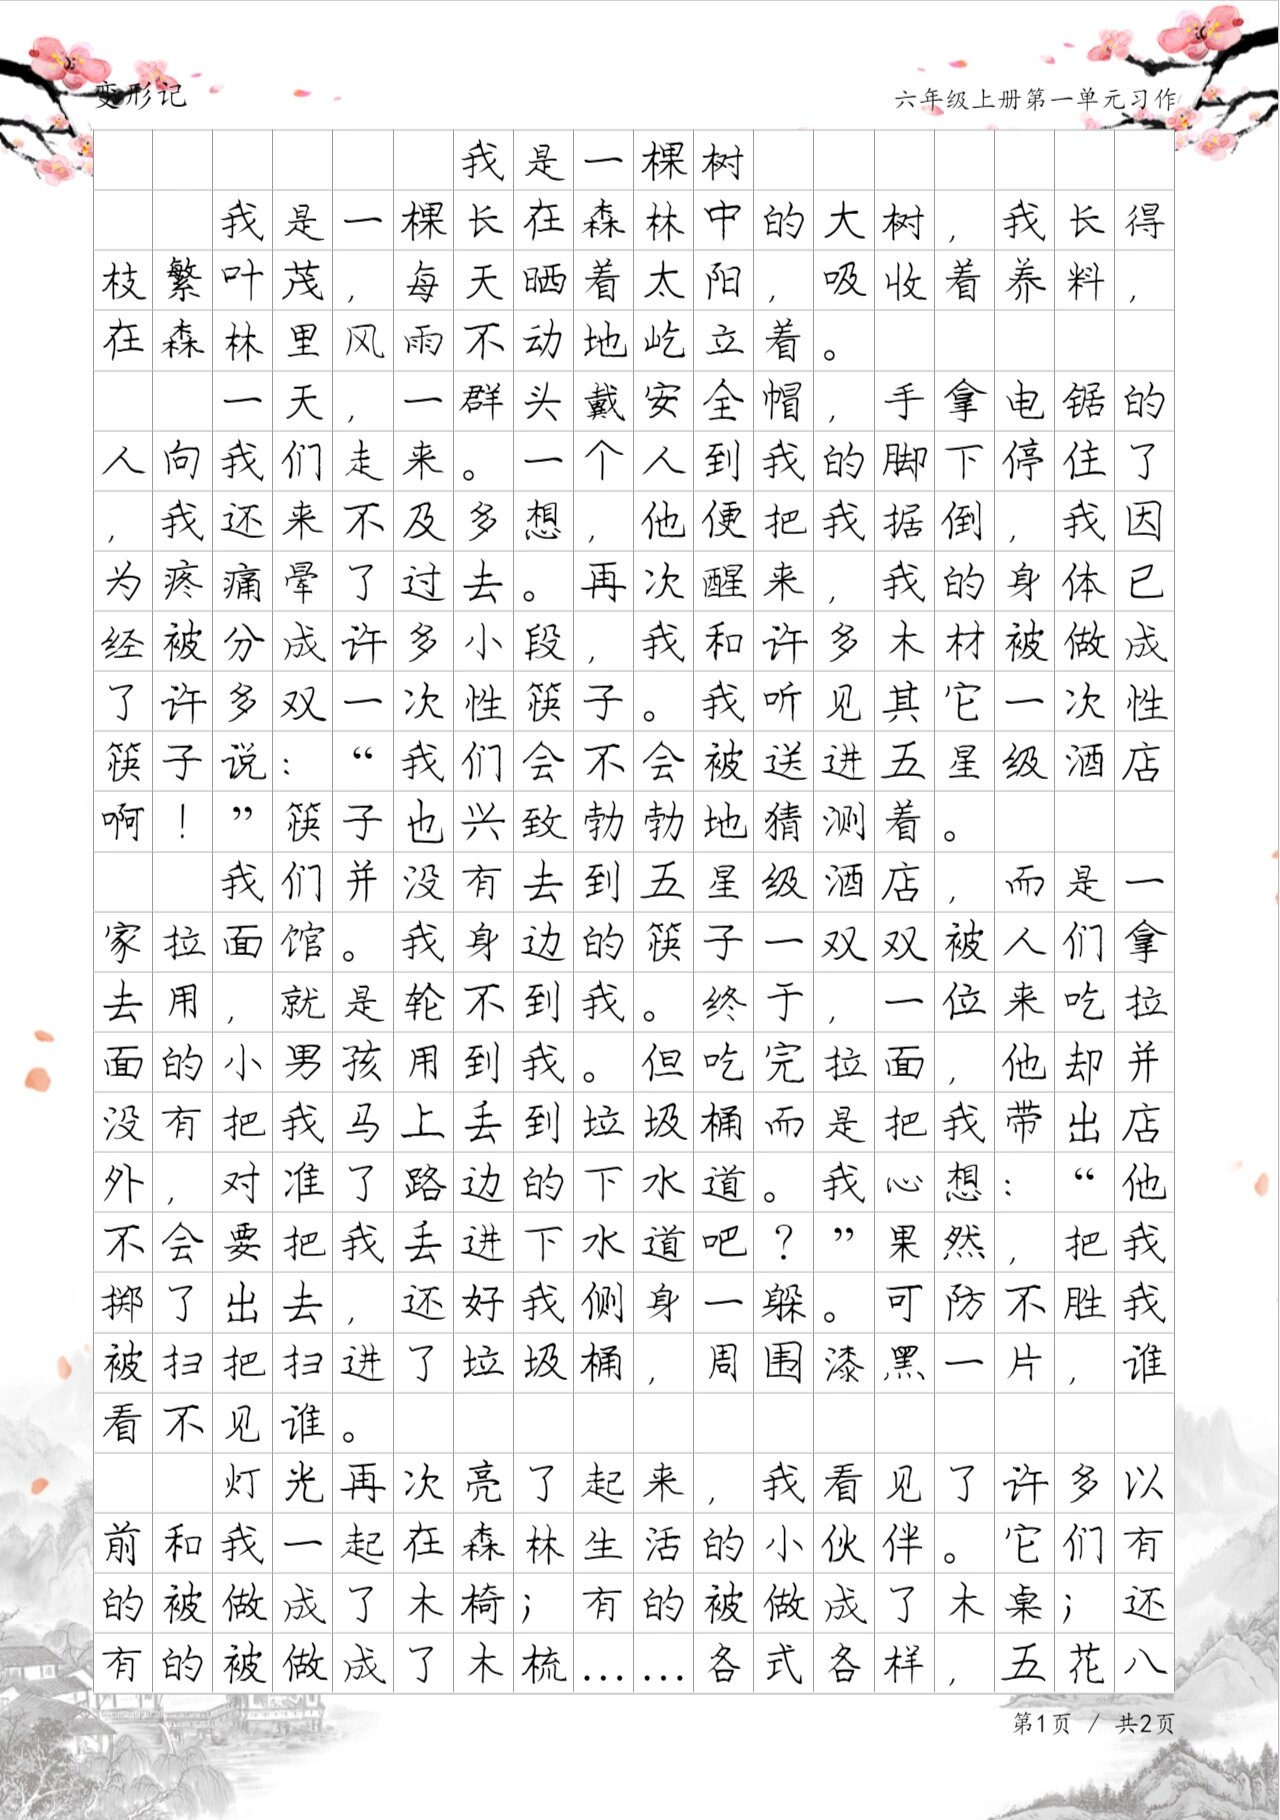 变形记
六年级上册第一单元习作
我是一棵树
我是一棵长在森林中的大树，我长得
枝繁叶茂，每天晒着太阳，吸收着养料，
在森林里风雨不动地屹立着。
一天，一群头戴安全帽，手拿电锯的
人向我们走来。一个人到我的脚下停住了
，我还来不及多想，他便把我据倒，我因
为疼痛晕了过去。再次醒来，我的身体已
经被分成许多小段，我和许多木材被做成
了许多双一次性筷子。我听见其它一次性
筷子说：“我们会不会被送进五星级酒店
啊！”筷子也兴致勃勃地猜测着。
我们并没有去到五星级酒店，而是一
家拉面馆。我身边的筷子一双双被人们拿
去用，就是轮不到我。终于，一位来吃拉
面的小男孩用到我。但吃完拉面，他却并
没有把我马上丢到垃圾桶而是把我带出店
外，对准了路边的下水道。我心想：“他
不会要把我丢进下水道吧？”果然，把我
掷了出去，还好我侧身一躲。可防不胜我
被扫把扫进了垃圾桶，周围漆黑一片，谁
看不见谁。
灯光再次亮了起来，我看见了许多以
前和我一起在森林生活的小伙伴。它们有
的被做成了木椅；有的被做成了木桌；还
有的被做成了木梳……各式各样，五花八
第1页 / 共2页